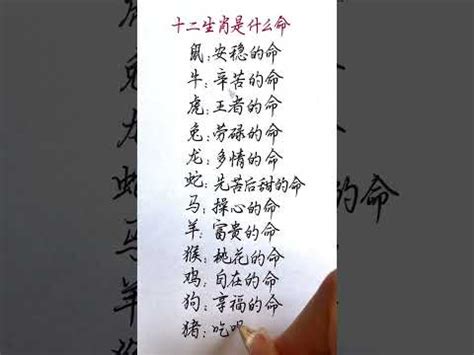 十二生肖是什么命
鼠:安稳的命
牛:辛苦的命
虎:王者的命
兔:劳碌的命
龙:多情的命
蛇:先苦后甜的命
马:操心的命
羊:富贵的命
猴:桃花的命
鸡:自在的命
狗:享福的命
猪:吃